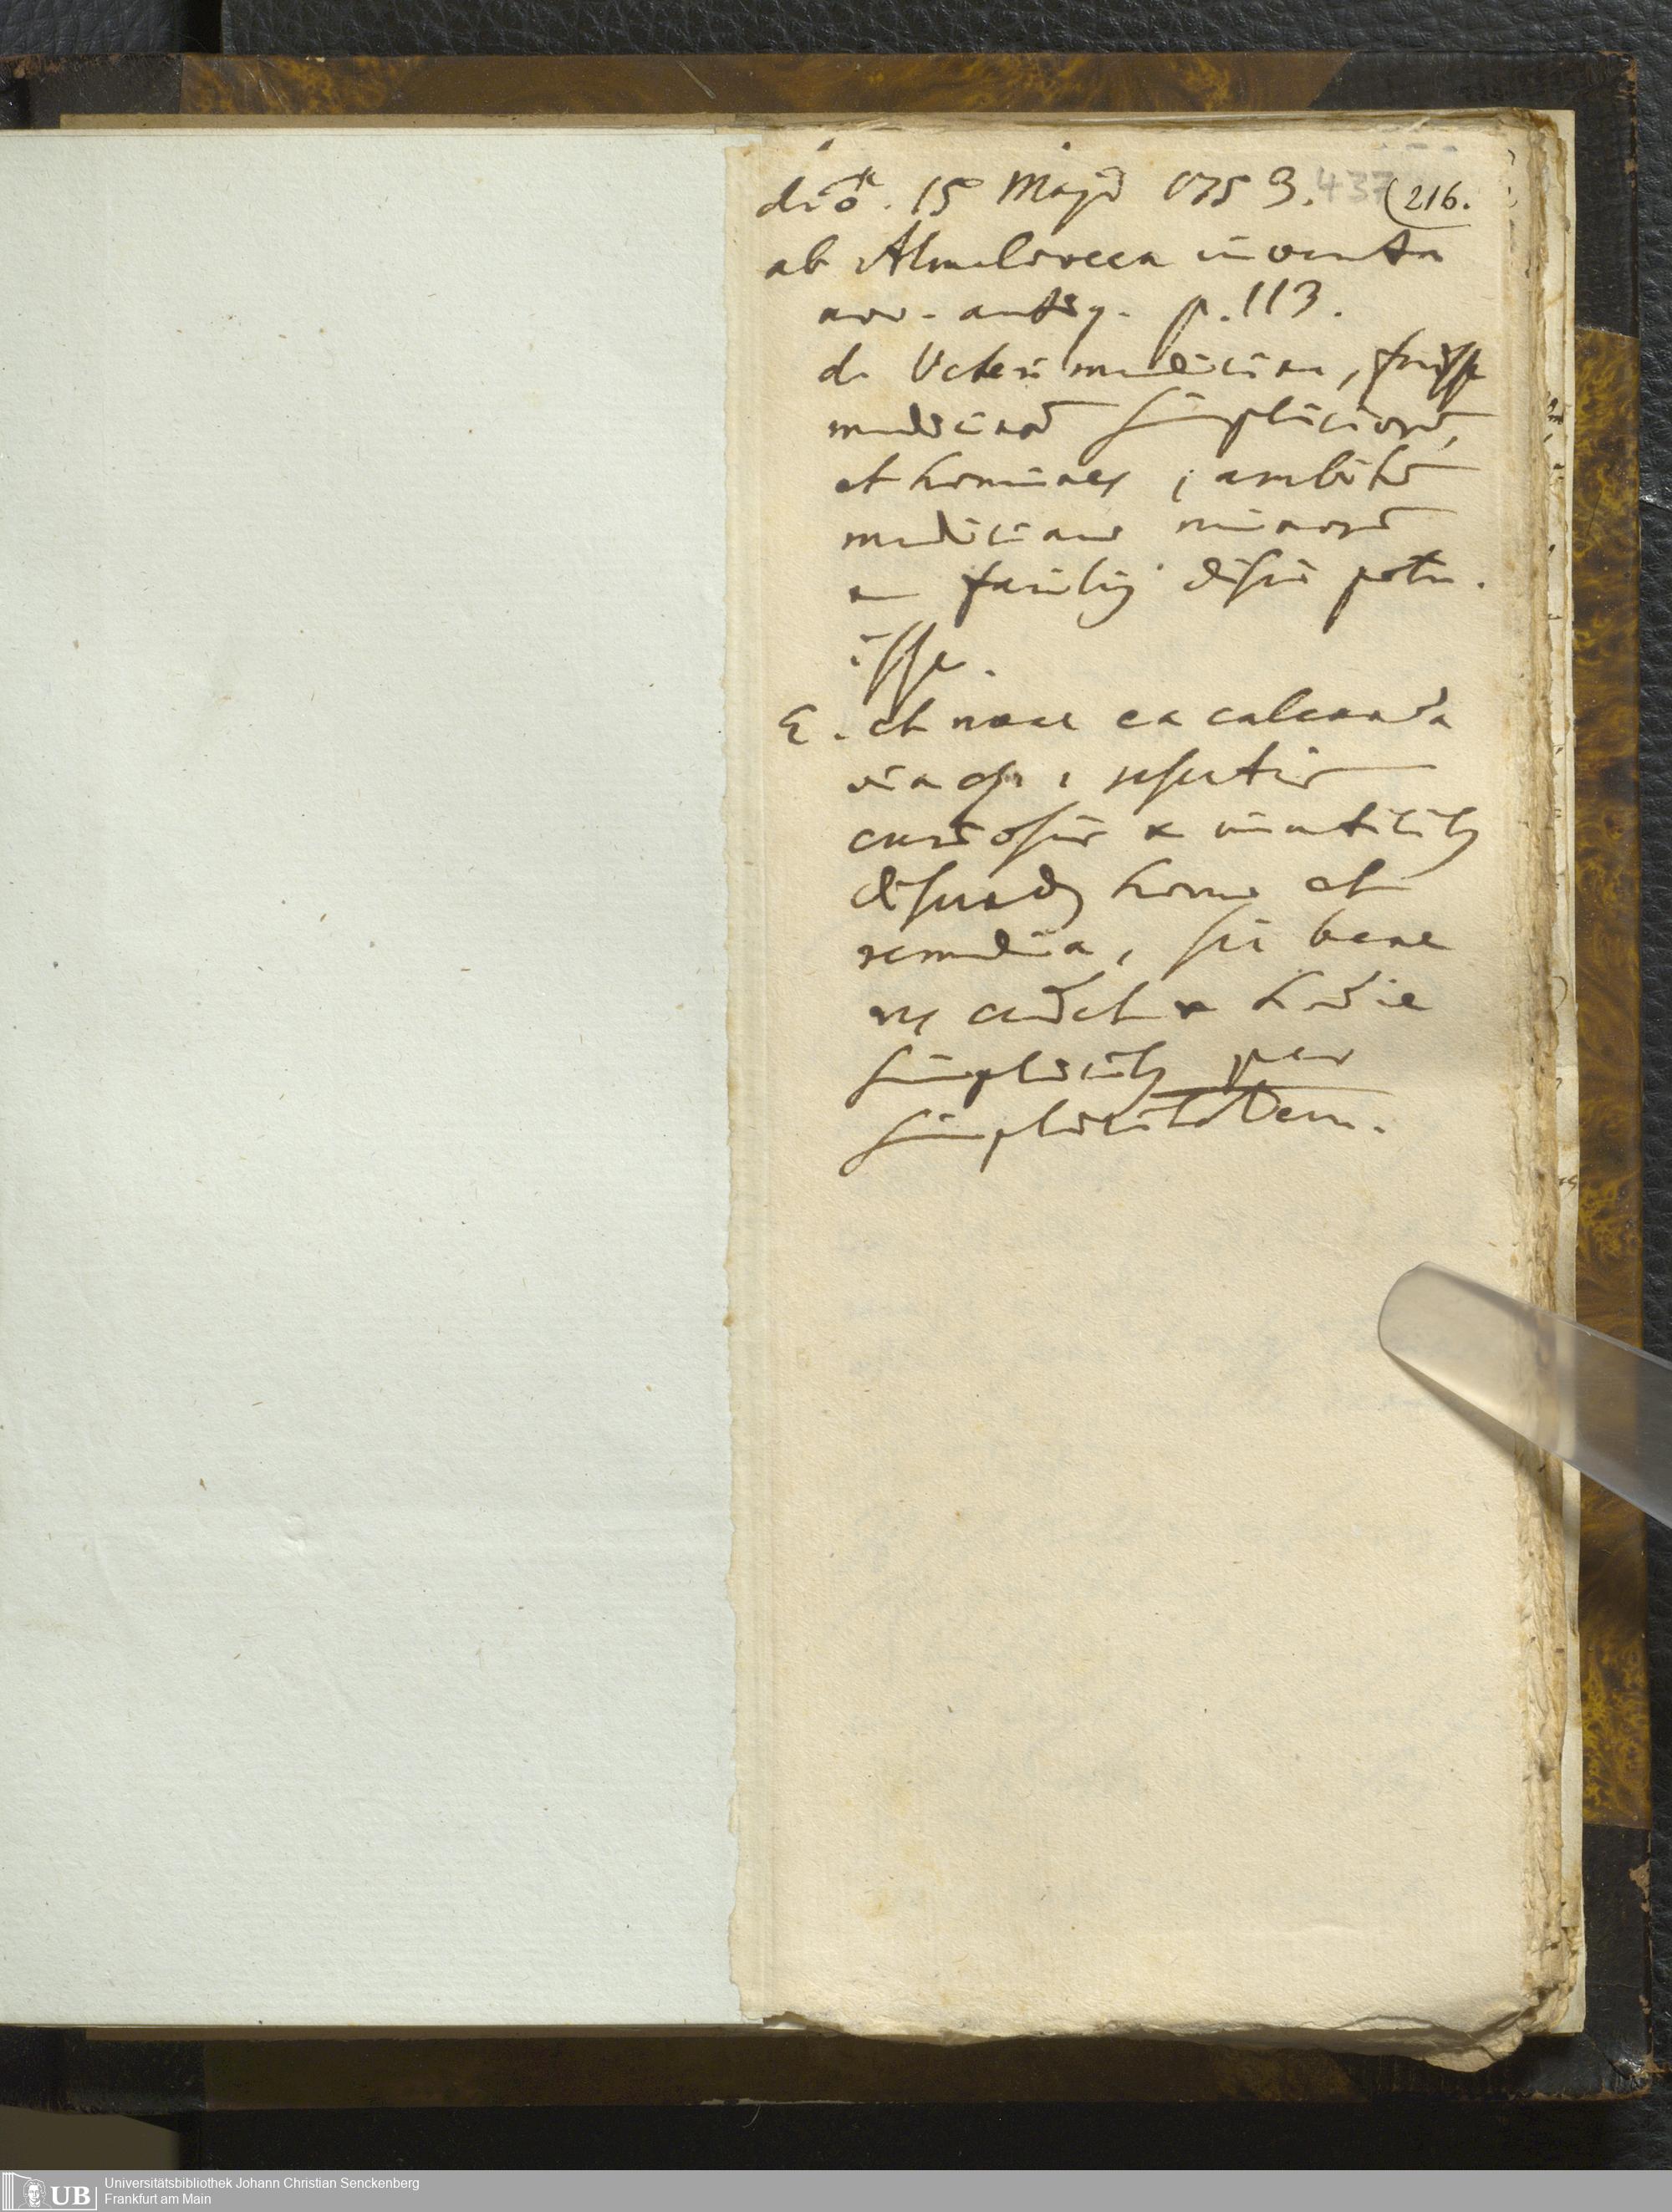 15 Maji 1753. 437 (216.
ab Almeloveen inventa
nov. antiq. p. 113.
de Veteri medicina, fuisse
medicinā simpliciorē,
et homines, ambitū
medicinae minorē
facilius disci potu-
isse.
E. et nunc ea calcanda
via
curiosis & inutilib9
homo et
remedia, si bene
hodie
simplicib9 per
simplicitatem.
UB Universitätsbibliothek Johann Christian Senckenberg
Frankfurt am Main